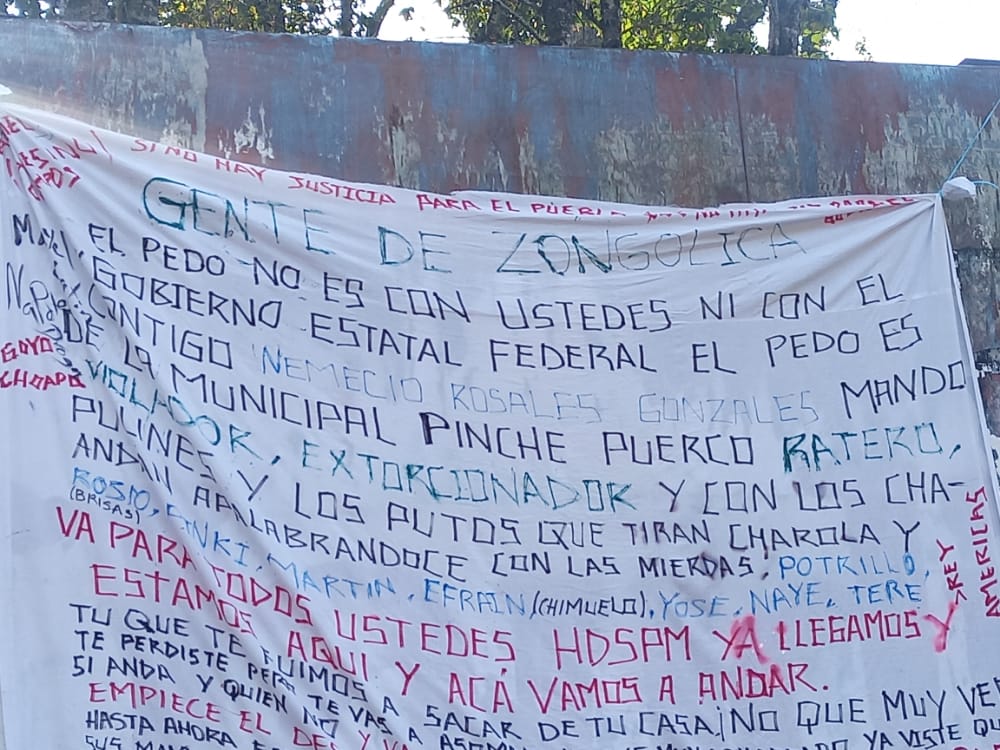 SI NO HAY JUSTICIA PARA EL PUEBLO
GENTE DE ZONGOLICA
EL PEDO NO ES CON USTEDES NI CON EL
GOBIERNO ESTATAL FEDERAL EL PEDO ES
CONTIGO NEMECIO ROSALES GONZALES MANDO
DE LA MUNICIPAL PINCHE PUERCO RATERO,
VIOLADOR, EXTORCIONADOR Y CON LOS CHA-
PULINES Y LOS PUTOS QUE TIRAN CHAROLA Y
ANDAN APALABRANDOCE CON LAS MIERDAS: POTRILLO,
ROSIO, (BRISAS) INKI, MARTIN, EFRAIN (CHIMUELO), YOSE, NAYE, TERE
REY
AMERICAS
GOYO
CHOAPA
VA PARA TODOS USTEDES HDSPM YA LLEGAMOS Y
ESTAMOS AQUI Y ACÁ VAMOS A ANDAR.
TU QUE TE FUIMOS A SACAR DE TU CASA ¡NO QUE MUY
TE PERDISTE PERO TE VAS A
SI ANDA Y QUIEN NO YA VISTE
EMPIECE EL
HASTA AHORA
SUS